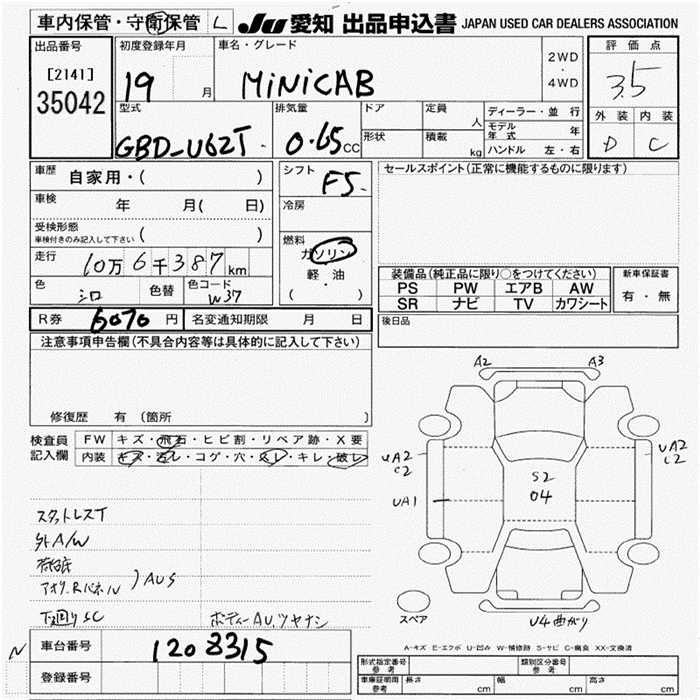 車内保管・守衛保管 L JU 愛知 出品申込書 JAPAN USED CAR DEALERS ASSOCIATION
出品番号 初度登録年月 車名・グレード 評価点
[2141] 35042 19 月 MiNiCAB 2WD・4WD 3.5
型式 排気量 ドア 定員 人 ディーラー・並行 外装 内装
GBD-U62T 0.65 CC 形状 積載 kg モデル年式 年 D C
ハンドル 左・右
車歴 自家用・( ) シフト F5 セールスポイント(正常に機能するものに限ります)
車検 年 月( 日) 冷房
受検形態 ( )
車検付きのみ記入して下さい
走行 10万6千387km 燃料 ガソリン
軽・油
( )
色 シロ 色替 色コード W37
装備品(純正品に限り○をつけてください) 新車保証書
PS PW エアB AW 有・無
SR ナビ TV カワシート
R券 6070円 名変通知期限 月 日 後日品
注意事項申告欄(不具合内容等は具体的に記入して下さい)
修復歴 有(箇所 )
検査員記入欄 FW キズ・飛石・ヒビ割・リペア跡・X要
内装 キズ・汚レ・コゲ・穴・スレ・キレ・破レ
A2 A3
UA2 C2
UA2 C2
S2
04
UA1
U4曲がり
スペア
スタットレスT
外A/W
荷箱底
アオリ、Rパネル ) AUS
下廻りSC ボディーAUツヤナシ
A-キズ E-エクボ U-凹ミ W-補修跡 S-サビ C-腐食 XX-交換済
N 車台番号 1208315
登録番号
形式指定番号 参考 類別区分番号 参考
車庫証明用 参考 長さ cm 幅 cm 高さ cm